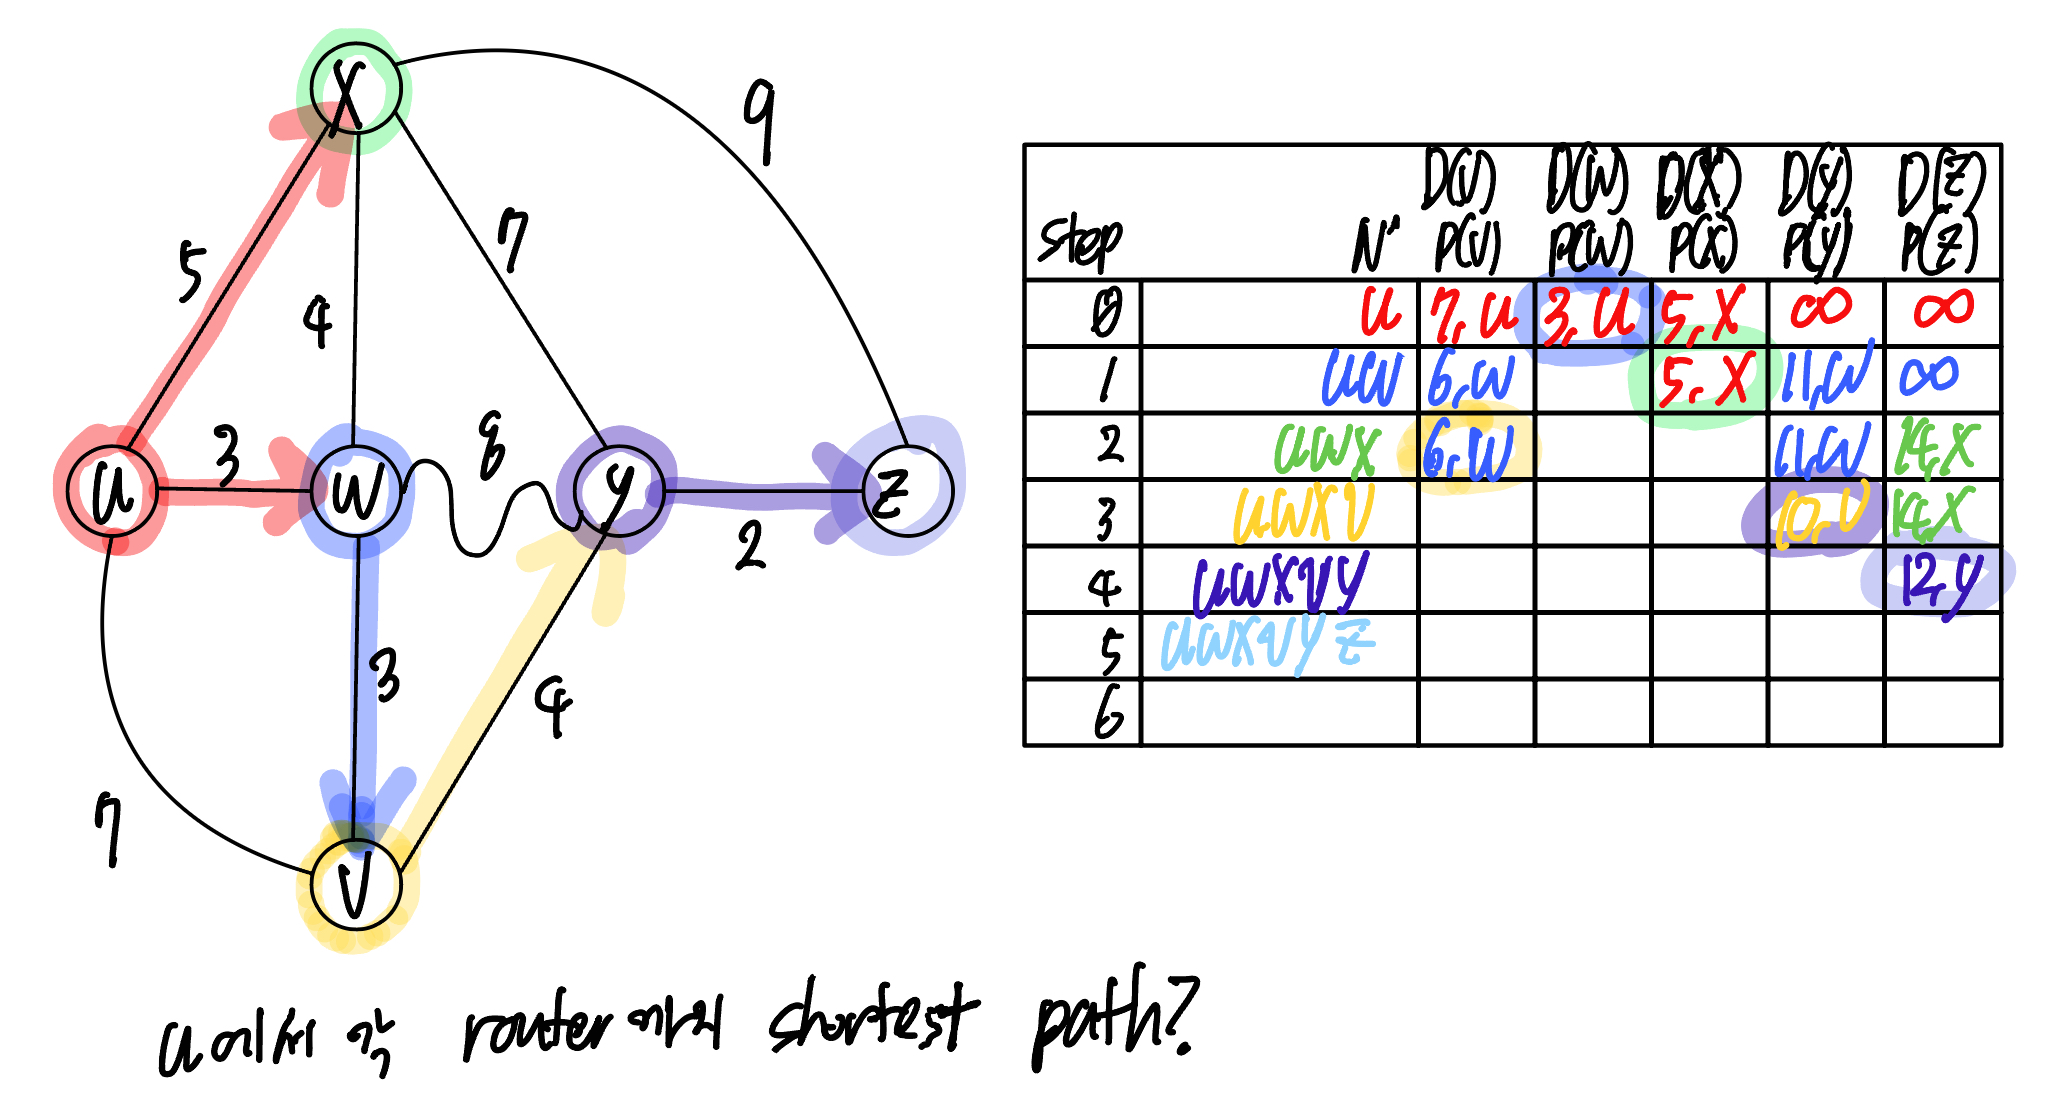 X
9
5
4
7
u
3
w
8
y
2
z
3
4
7
v
step N' D(v) P(v) D(w) P(w) D(x) P(x) D(y) P(y) D(z) P(z)
0 u 7,u 3,u 5,X ∞ ∞
1 uw 6,w 5,X 11,w ∞
2 uwx 6,w 11,w 14,X
3 uwxv 10,v 14,X
4 uwxvy 12,y
5 uwxvyz
6
u에서 각 router까지 shortest path?